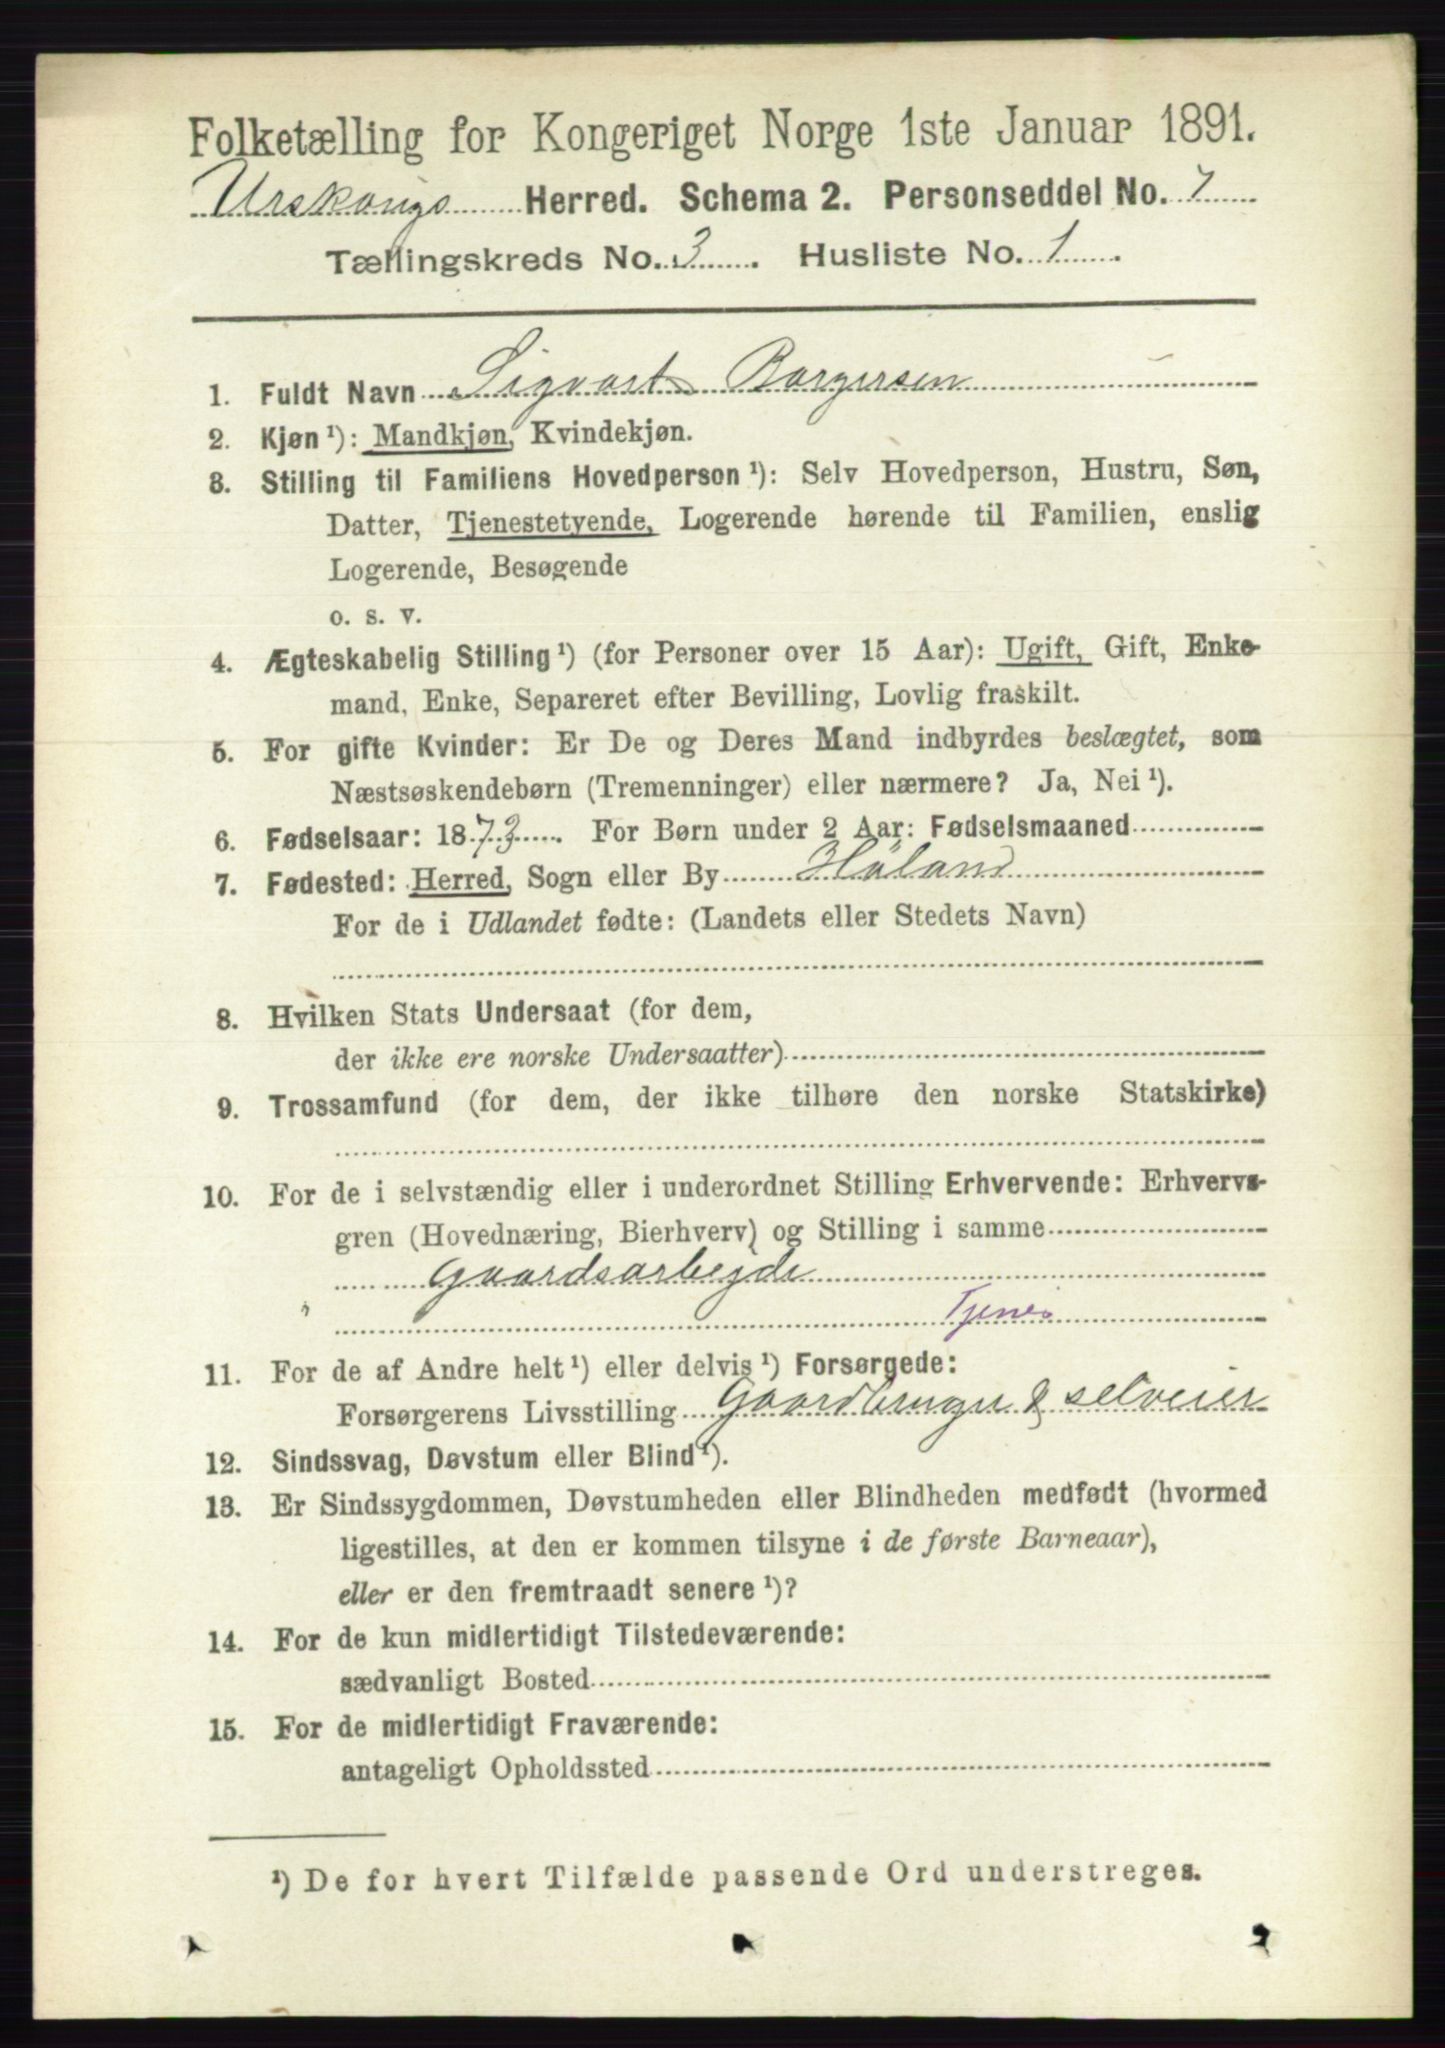 Folketælling for Kongeriget Norge 1ste Januar 1891.
Urskougs Herred. Schema 2. Personseddel No. 7
Tællingskreds No. 3. Husliste No. 1.
1. Fuldt Navn Sigvart Borgersen
2. Kjøn ¹): Mandkjøn, Kvindekjøn.
3. Stilling til Familiens Hovedperson ¹): Selv Hovedperson, Hustru, Søn,
Datter, Tjenestetyende, Logerende hørende til Familien, enslig
Logerende, Besøgende
o. s. v.
4. Ægteskabelig Stilling ¹) (for Personer over 15 Aar): Ugift, Gift, Enke-
mand, Enke, Separeret efter Bevilling, Lovlig fraskilt.
5. For gifte Kvinder: Er De og Deres Mand indbyrdes beslægtet, som
Næstsøskendebørn (Tremenninger) eller nærmere? Ja, Nei ¹).
6. Fødselsaar: 1873. For Børn under 2 Aar: Fødselsmaaned
7. Fødested: Herred, Sogn eller By Høland
For de i Udlandet fødte: (Landets eller Stedets Navn)
8. Hvilken Stats Undersaat (for dem,
der ikke ere norske Undersaatter)
9. Trossamfund (for dem, der ikke tilhøre den norske Statskirke)
10. For de i selvstændig eller i underordnet Stilling Erhvervende: Erhvervs-
gren (Hovednæring, Bierhverv) og Stilling i samme
Gaardsarbejde
" Tjener
11. For de af Andre helt ¹) eller delvis ¹) Forsørgede:
Forsørgerens Livsstilling Gaardbruger & selveier
12. Sindssvag, Døvstum eller Blind ¹).
13. Er Sindssygdommen, Døvstumheden eller Blindheden medfødt (hvormed
ligestilles, at den er kommen tilsyne i de første Barneaar),
eller er den fremtraadt senere ¹)?
14. For de kun midlertidigt Tilstedeværende:
sædvanligt Bosted
15. For de midlertidigt Fraværende:
antageligt Opholdssted
¹) De for hvert Tilfælde passende Ord understreges.